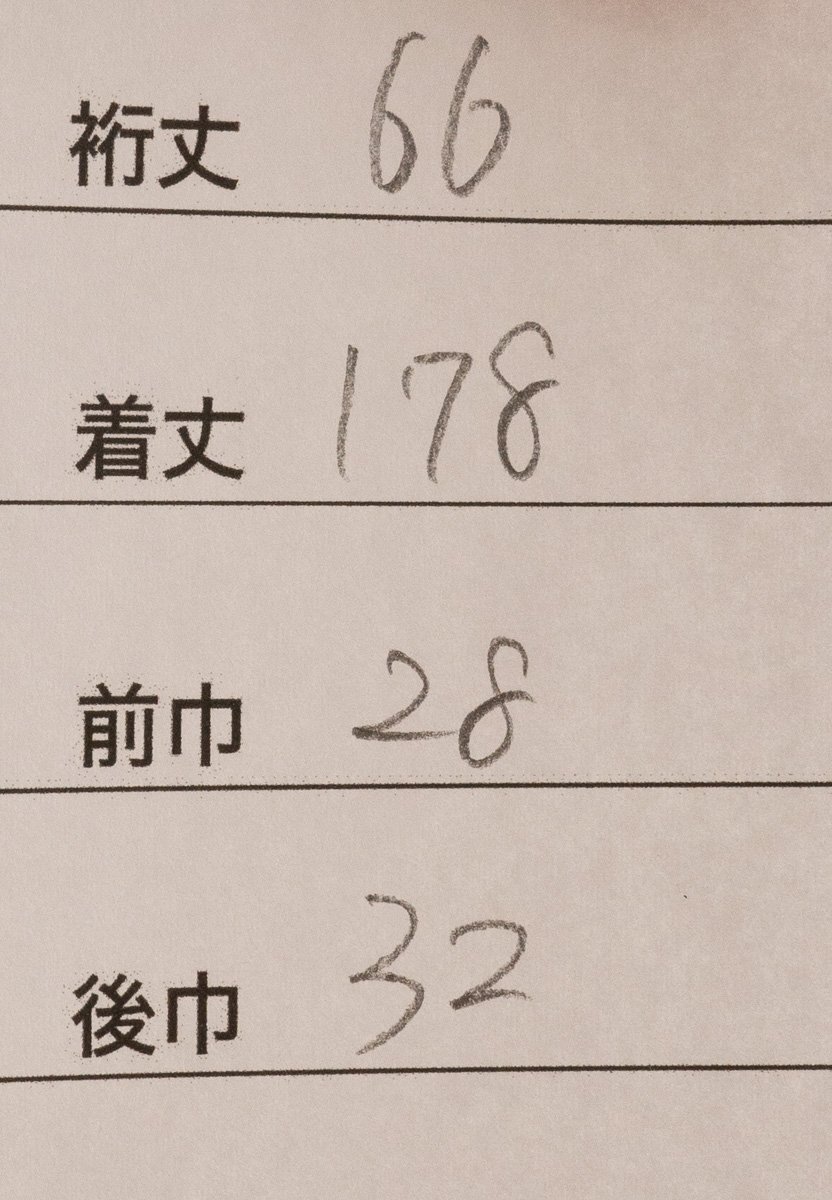 裄丈 66
着丈 178
前巾 28
後巾 32